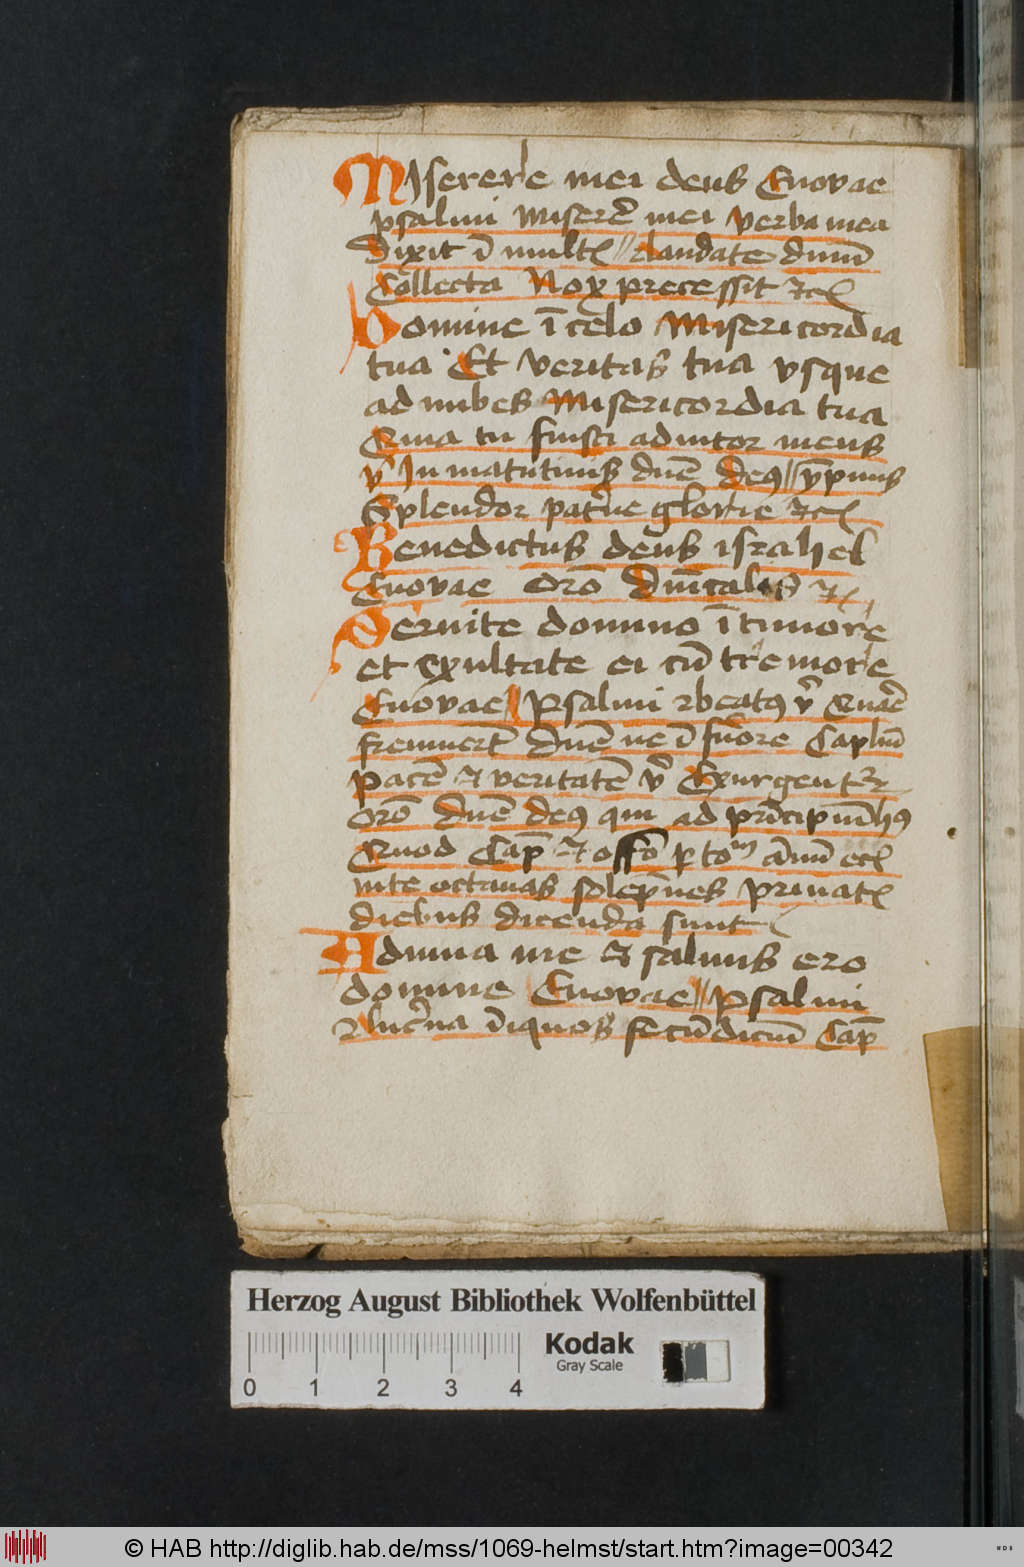 Miserere mei deus Euovae
psalmi Miserē mei verba mea
Dixit ī mult // laudate dnm̄
Collecta Nox precessit
Domine ī celo Misericordia
tua Et veritas tua vsque
ad nubes Misericordia tua
Quia tu fuisti adiutor meus
In matutinis dnē deus // ympnus
Splendor paterne glorie
Benedictus deus israhel
Euovae Orō Dnīcalis
Seruite domino ī timore
et exultate ei cū tremore
Euovae Psalmi beatus Quarē
fremuert dnē ne ī furore Caplm̄
Pacē veritatē Exurgent
Orō dnē deus qui ad principium
Quod Cap
octauas solepnes priuat
diebus dicenda sunt
Adiuua me saluus ero
domine Euovae // Psalmi
lucerna īiquos fecūdicm̄ Cap
Herzog August Bibliothek Wolfenbüttel
Kodak
Gray Scale
0 1 2 3 4
© HAB http://diglib.hab.de/mss/1069-helmst/start.htm?image=00342